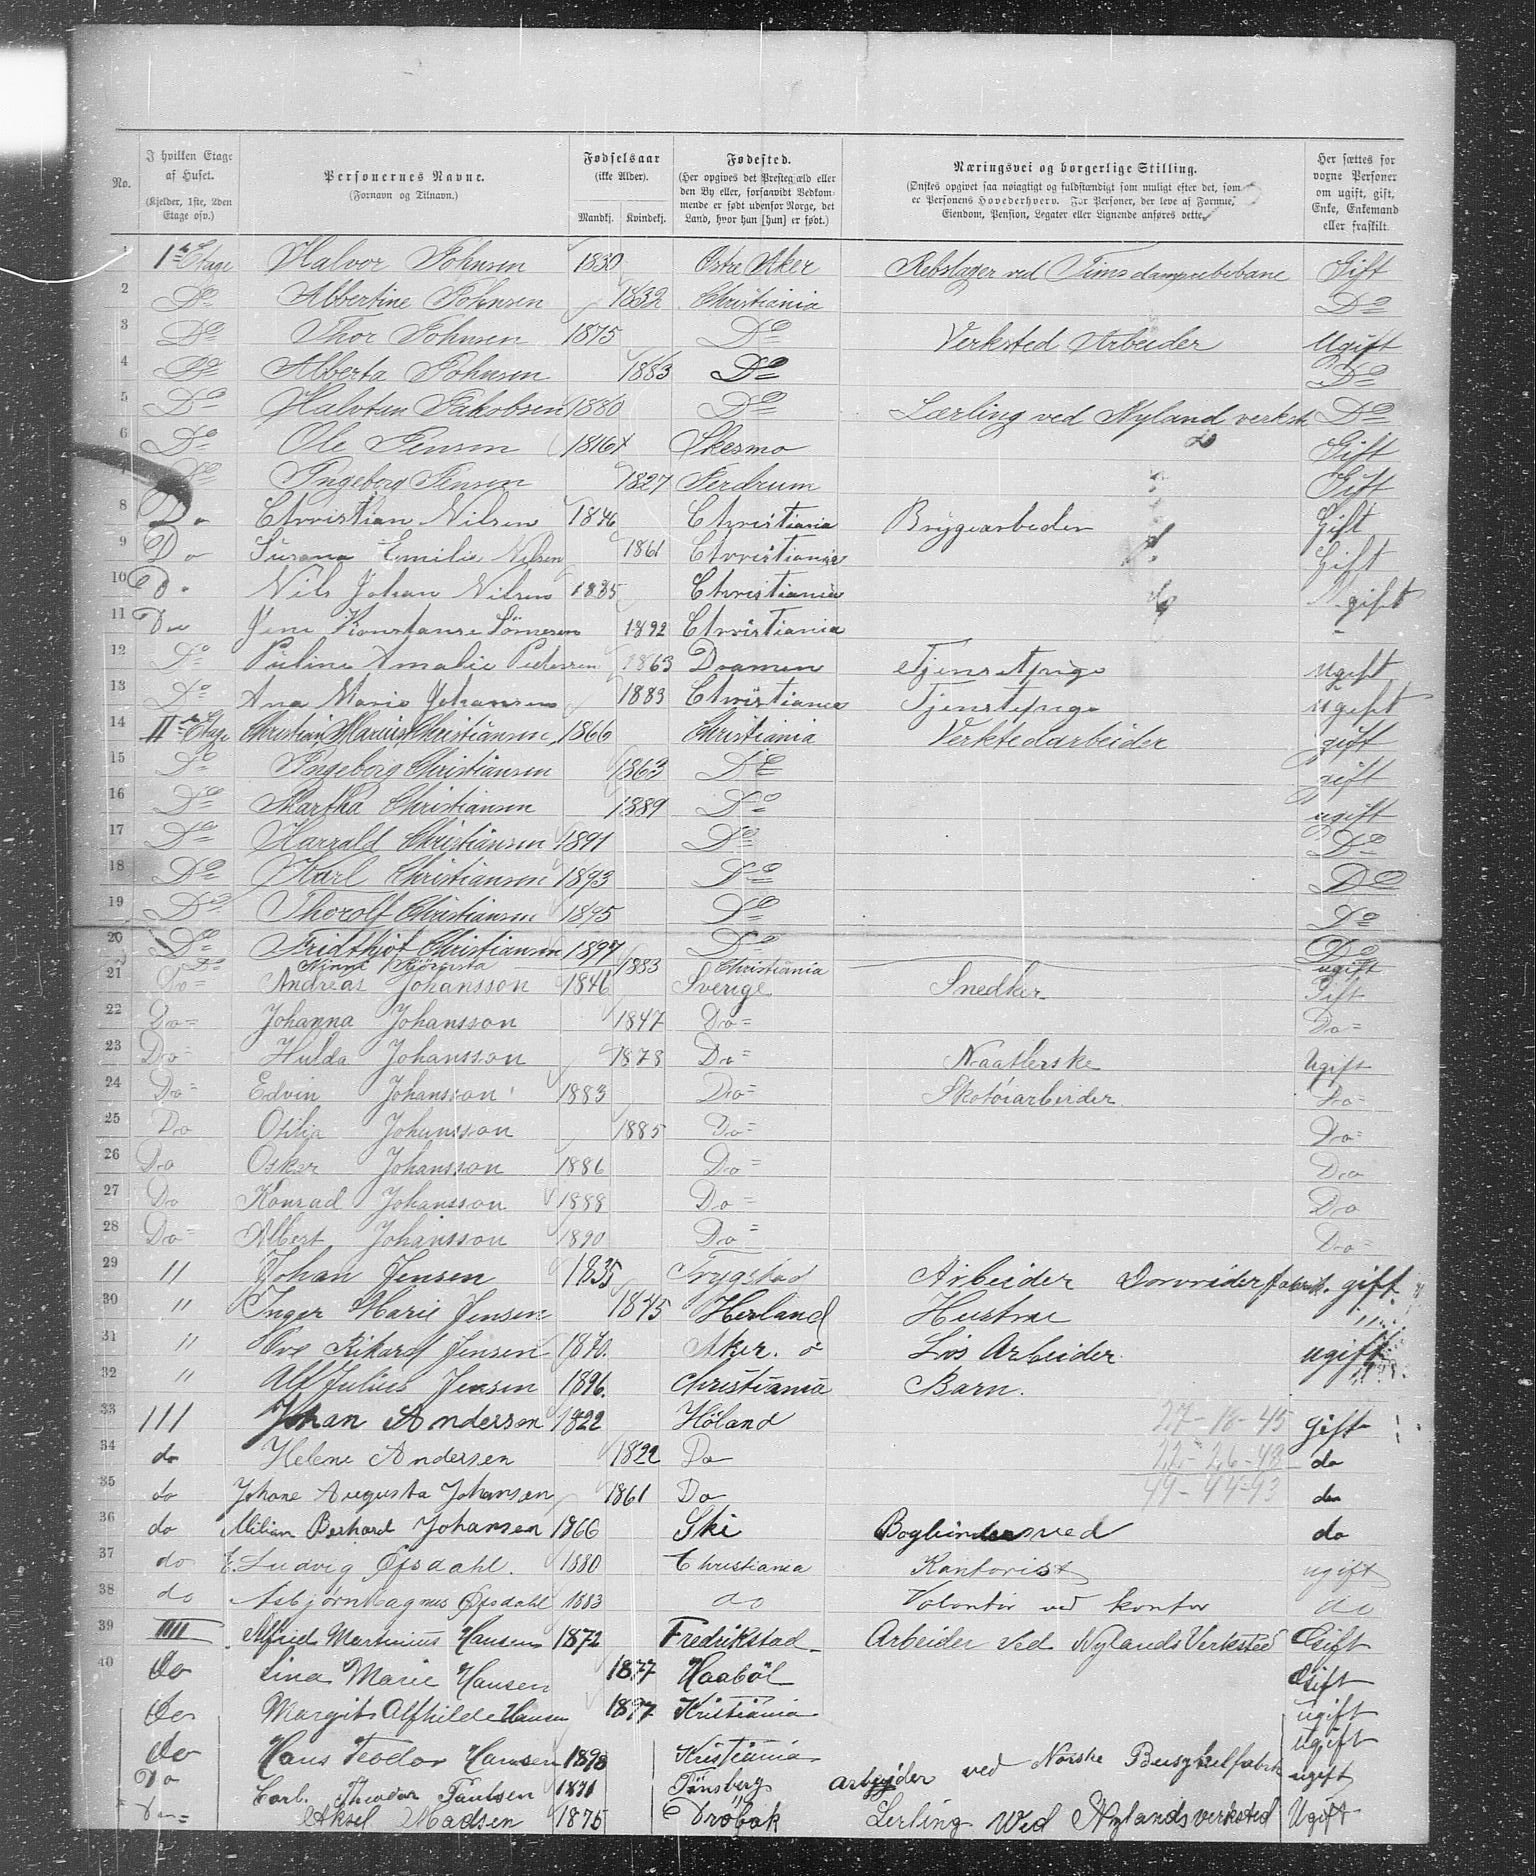 No.
I hvilken Etage af Huset. (Kjelder, 1ste, 2den Etage osv.)
Personernes Navne. (Fornavn og Tilnavn.)
Fødselsaar (ikke Alder). Mandkj. Kvindekj.
Fødested. (Her opgives det Præstegjæld eller den By eller, forsaavidt Vedkommende er født udenfor Norge, det Land, hvor han [hun] er født.)
Næringsvei og borgerlige Stilling. (Ønskes opgivet saa nøiagtigt og fuldstændigt som muligt efter det, som er Personens Hovederhverv. For Personer, der leve af Formue, Eiendom, Pension, Legater eller Lignende anføres dette.)
Her sættes for voxne Personer om ugift, gift, Enke, Enkemand eller fraskilt.
1 1ste Etage Halvor Johnsen 1830 Østre Aker Rebslager ved Fims damprebebane Gift
2 Do Albertine Johnsen 1832 Christiania Do
3 Do Thor Johnsen 1875 Do Verksted Arbeider Ugift
4 Do Alberta Johnsen 1883 Do Do
5 Do Halvtan Jakobsen 1880 Do Lærling ved Nyland verkst Do
6 Do Ole Jensen 1816 Skesmo Gift
7 Do Ingeborg Jensen 1827 Ferdrum Gift
8 Do Christian Nilsen 1846 Christiania Brygearbeder Gift
9 Do Susana Emilie Nilsen 1861 Christiania Gift
10 Do Nils Johan Nilsen 1885 Christiania Ugift
11 Do Jeni Konstanse 1892 Christiania -
12 Do Puline Amalie Pedersen 1863 Dramen Tjenstpige ugift
13 Do Ana Marie Johansen 1883 Christiania Tjenstpige ugift
14 II Etage Christian Marius Christiansen 1866 Christiania Verkstedarbeider gift
15 Do Ingeborg Christiansen 1863 Do gift
16 Do Martha Christiansen 1889 Do ugift
17 Do Harrald Christiansen 1891 Do Do
18 Do Karl Christiansen 1893 Do Do
19 Do Thorolf Christiansen 1895 Do Do
20 Do Fridthjof Christiansen 1897 Do Do
Do Minni 1883 Christiania ugift
21 Do Andreas Johansson 1846 Sverige Snedker Gift
22 Do Johanna Johansson 1847 Do Do
23 Do Hulda Johansson 1873 Do Naatlerske Ugift
24 Do Edvin Johansson 1883 Do Skotøiarbeider Do
25 Do Otilia Johansson 1885 Do Do
26 Do Oskar Johansson 1886 Do Do
27 Do Konrad Johansson 1888 Do Do
28 Do Albert Johansson 1890 Do Do
29 " Johan Jensen 1835 Trygstad Arbeider fabrik. gift
30 " Inger Marie Jensen 1845 Herland Hustrue "
31 " Ove Rikard Jensen 1870. Aker. Løs Arbeider ugift
32 " Alf Julius Jensen 1896. Christiania Barn. "
33 III Johan Andersen 1822 Höland 27-18-45 Gift
34 do Helene Andersen 1822 Do 22-26-48 do
35 do Johane Augusta Johansen 1861 Do 49-44-93 do
36 do Milian Berhard Johansen 1866 Ski Bogbindersved do
37 do E. Ludvig Ofsdahl. 1880 Christiania Kantorist ugift
38 do Asbjørn Magnus Ofsdahl 1883 do Volontør ved kontor do
39 IIII Alfred Martinius Hansen 1872 Fredrikstad Arbeider Ved Nylands Verksted Gift
40 do Lina Marie Hansen 1877 Haaböl Gift
do Margit Alfhilde Hansen 1897 Kristiania ugift
do Hans Teodor Hansen 1898 Kristiania ugift
Do Carl. Theodor Paulsen 1871 Tönsberg arbejder ved Norske Busykelfabrik ugift
Do Aksel Madsen 1875 Dröbak Lerling Ved Nylandsverksted Ugift